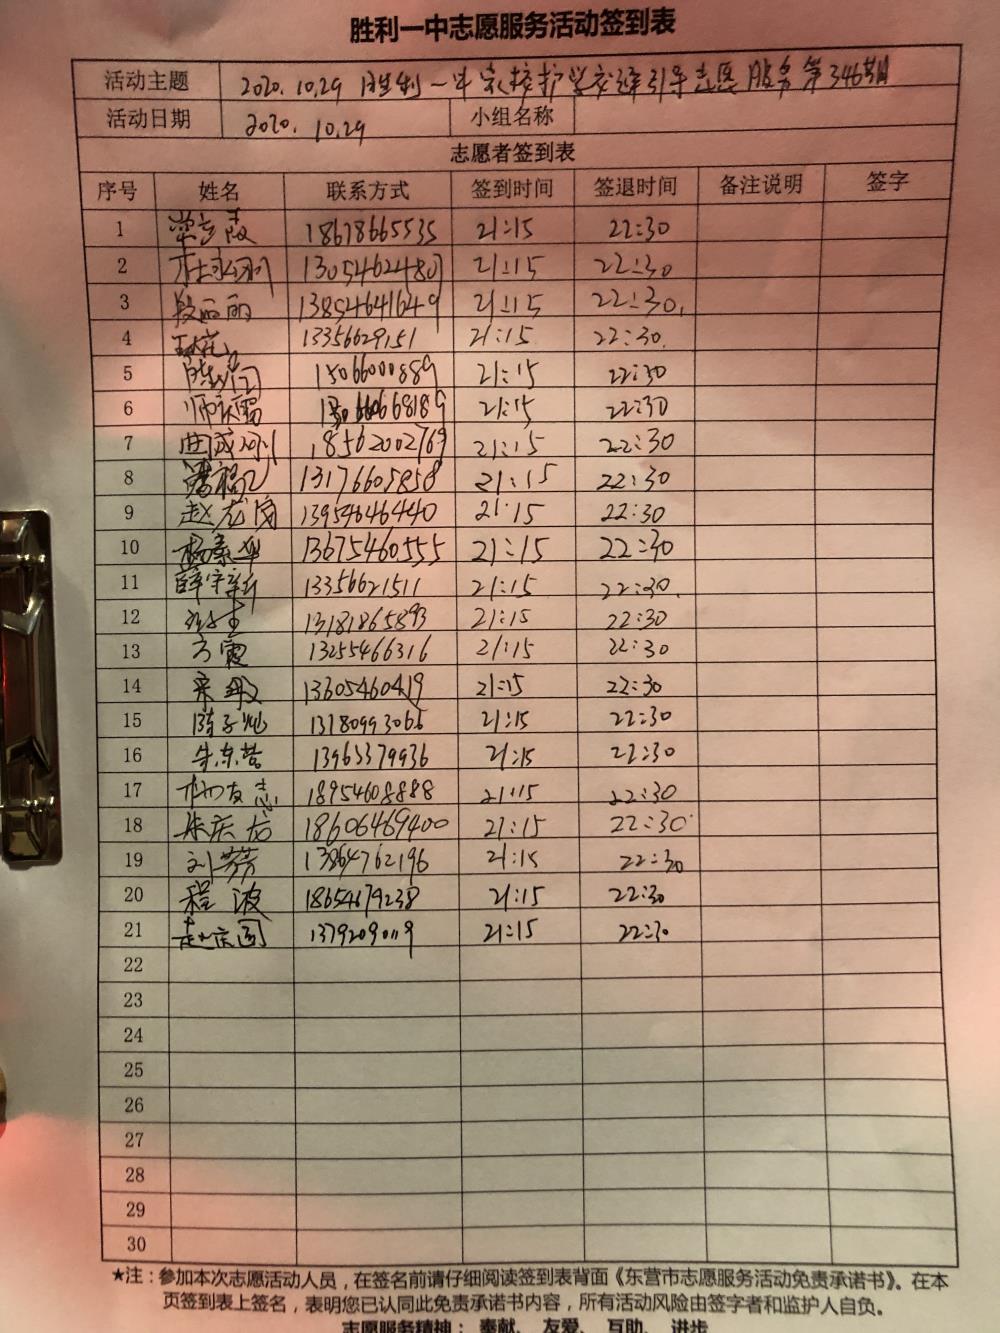 胜利一中志愿服务活动签到表
活动主题 2020.10.29 胜利一中家校护学交通引导志愿服务第346期
活动日期 2020.10.29 小组名称
志愿者签到表
序号 姓名 联系方式 签到时间 签退时间 备注说明 签字
1 18678665535 21:15 22:30
2 13054624807 21:15 22:30
3 段丽丽 13854641649 21:15 22:30
4 13356629151 21:15 22:30
5 15066000889 21:15 22:30
6 师庆雷 21:15 22:30
7 曲成刚 18562002769 21:15 22:30
8 13176605858 21:15 22:30
9 赵龙岗 13954646440 21:15 22:30
10 杨素华 13675460555 21:15 22:30
11 薛宇新 13356621511 21:15 22:30
12 13181865893 21:15 22:30
13 方霞 13255466316 21:15 22:30
14 宋敏 13605460419 21:15 22:30
15 21:15 22:30
16 朱东营 13963379936 21:15 22:30
17 杨友志 18954608888 21:15 22:30
18 朱庆龙 18606469400 21:15 22:30
19 刘芳 13864762196 21:15 22:30
20 程波 18654679238 21:15 22:30
21 赵庆国 21:15 22:30
22
23
24
25
26
27
28
29
30
★注：参加本次志愿活动人员，在签名前请仔细阅读签到表背面《东营市志愿服务活动免责承诺书》。在本
页签到表上签名，表明您已认同此免责承诺书内容，所有活动风险由签字者和监护人自负。
志愿服务精神：奉献、友爱、互助、进步